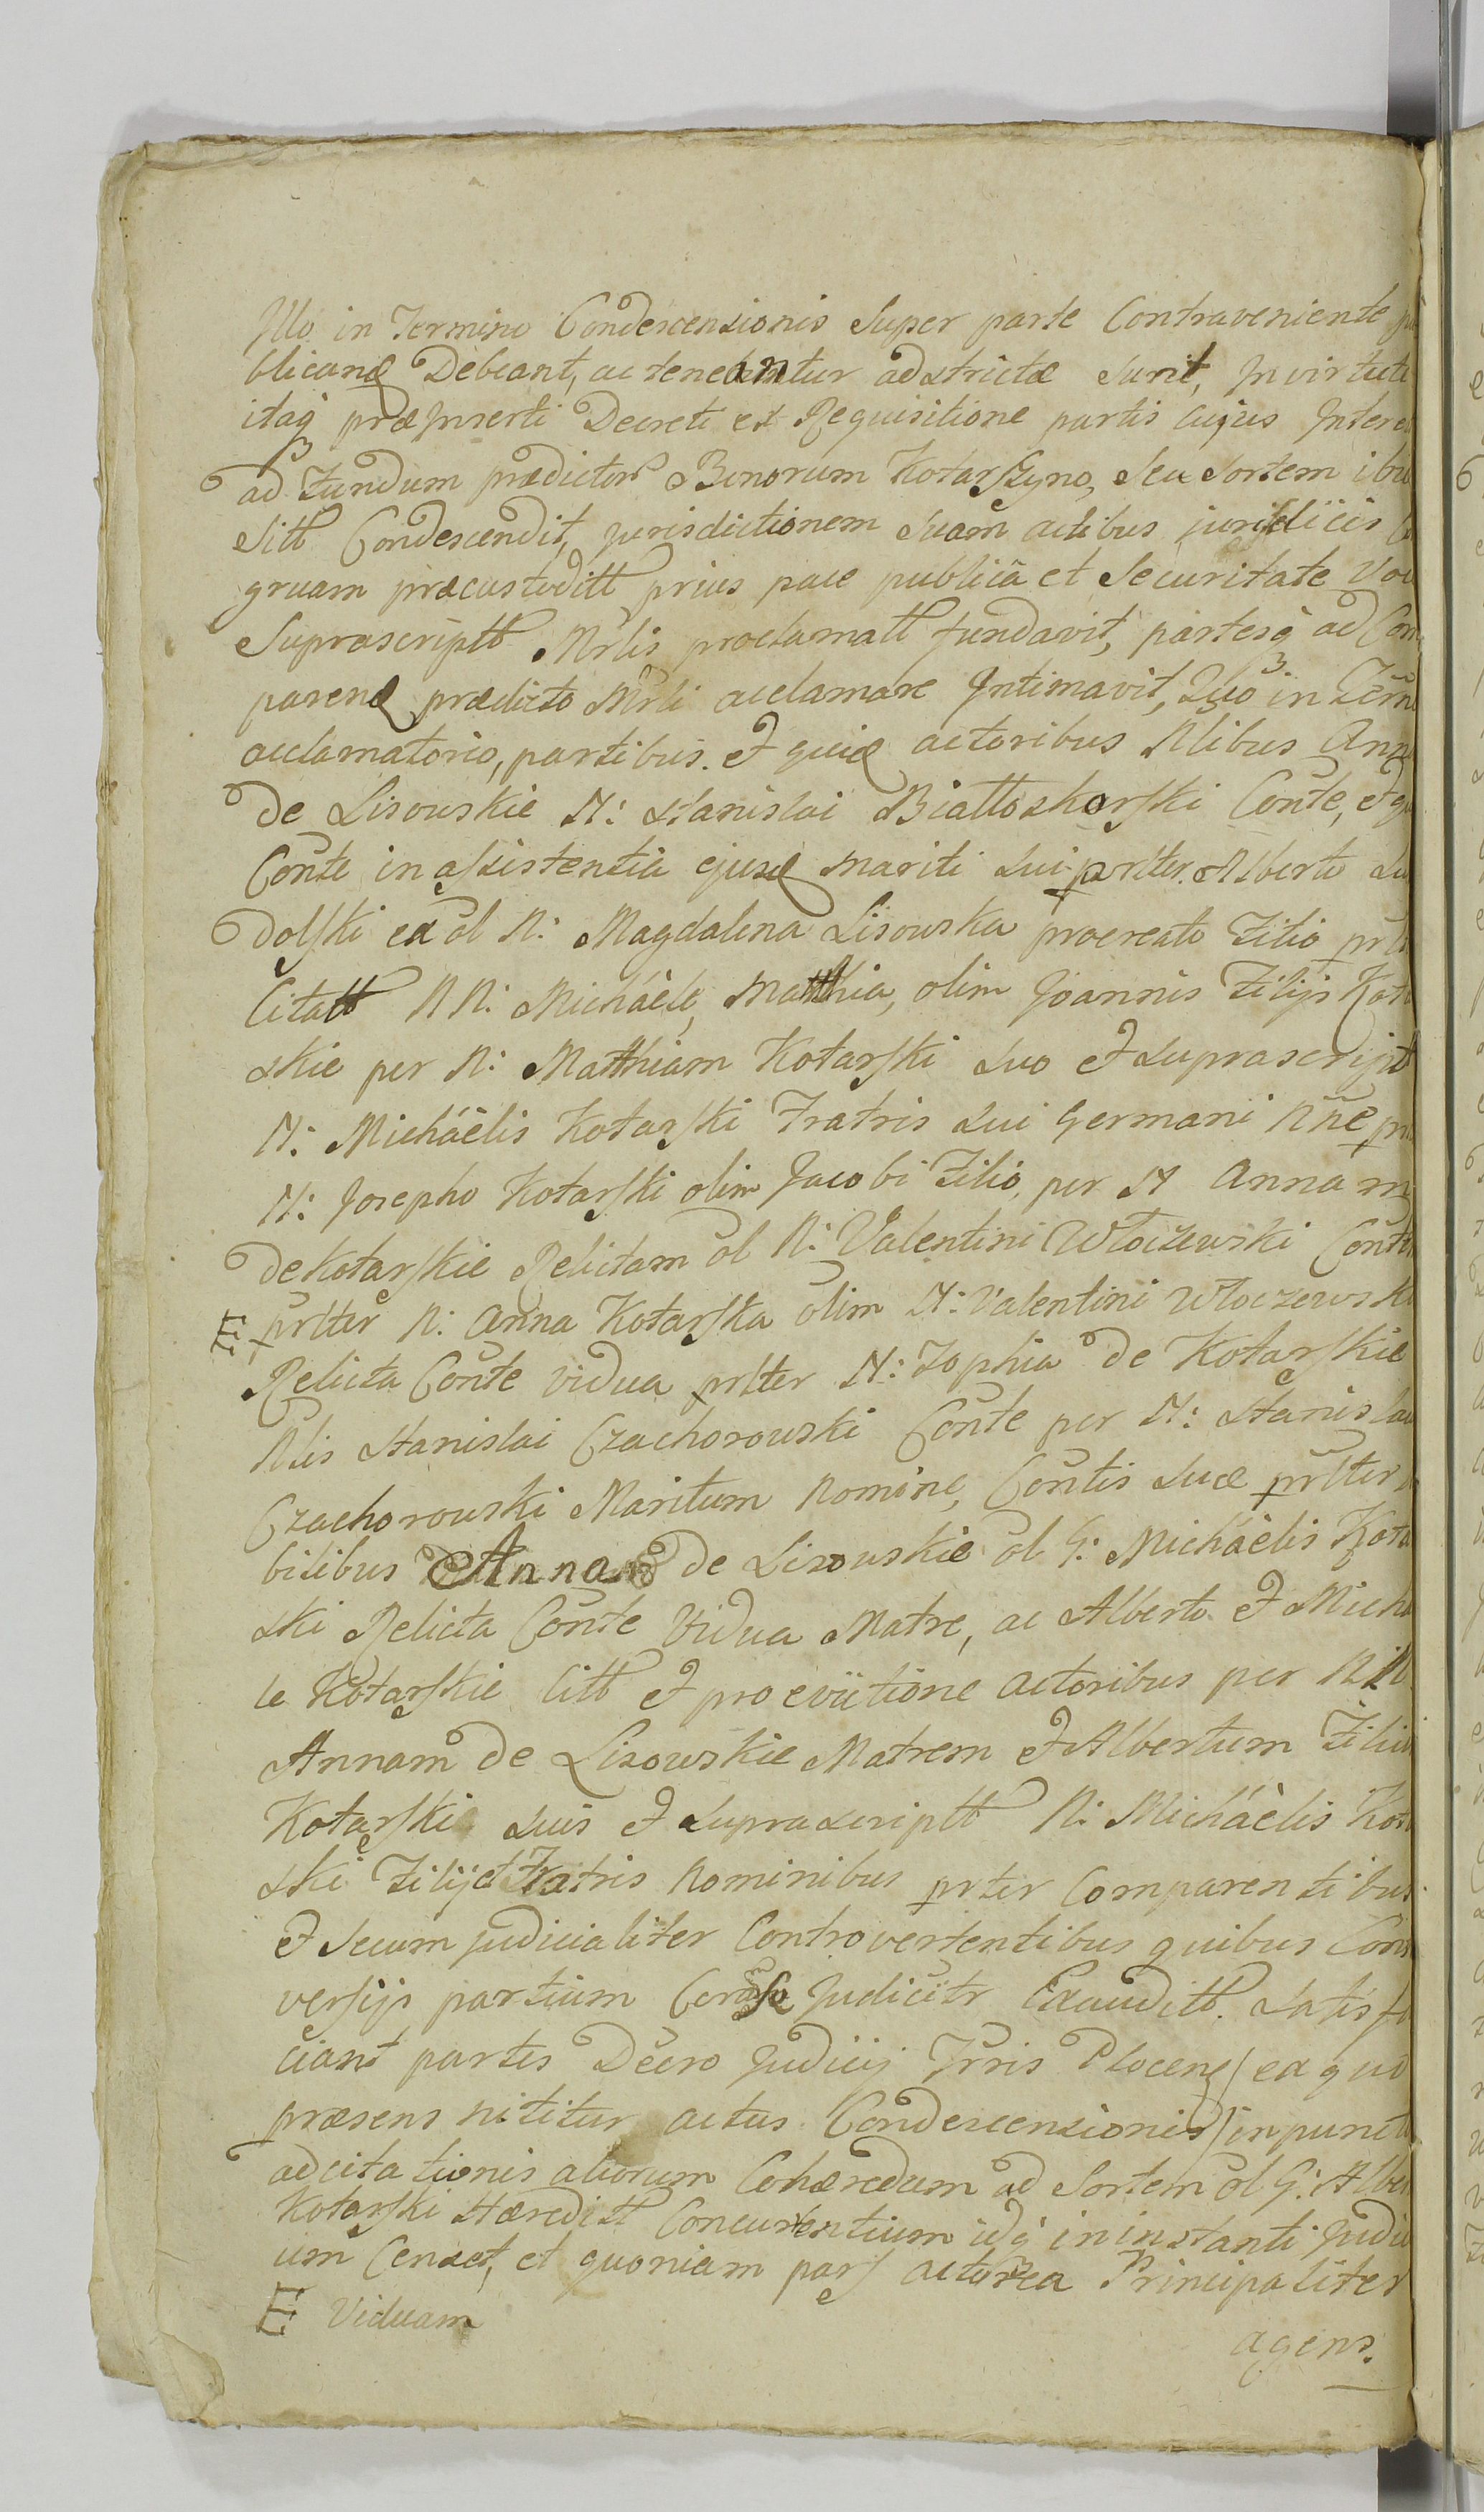 Illo in Termino Condescensionis Super parte Contraveniente
blicand Debeant, ac teneantur adstrictæ sunt, In virtute
itaq præInserti Decreti ex Requisitione partis cujus Intere
ad Fundum prædictor Bonorum Kotarszyno, seu Sortem ibi
Sitt Condescendit, jurisdictionem suam actibus juridicis
gruam præcustoditt prius pace publica et Securitate Voc
Suprascriptt Mrlis proclamatt fundavit, partesq ad Com
parend prædicto Mrli acclamare Intimavit, Quo in Termo
acclamatorio, partibus. et quid actoribus Nlibus Anna
de Lisowskie N: Stanislai Białłoskorski Conte, et
Conte in assistentia ejusd mariti sui prltter Alberto
dolski ex ol N: Magdalena Lisowska procreato Filio
Citatt NN: Michaele, Matthia, olim Joannis Filijs Kota
skie per N: Matthiam Kotarski suo et suprascript
N: Michaëlis Kotarski Fratris sui Germani Nne
N: Josepho Kotarski olim Jacobi Filio, per N Annam
de Kotarskie Relictam ol N: Valentini Włoczewski Conte
E prltter N: Anna Kotarska olim N: Valentini Włoczewski
Relicta Conte vidua prltter N: Zophia de Kotarskie
Nlis Stanislai Czachorowski Conte per N: Stanislau
Czachorowski Maritum nomine, Contis suæ prltter
bilibus Anna de Lisowskie ol G: Michaëlis Kota
ski Relicta Conte Vidua Matre, ac Alberto et Micha
le Kotarskie Citt et pro evictione actoribus per NN
Annam de Lisowskie Matrem et Albertum Filiu
Kotarskie suis et suprascriptt N: Michaëlis Kota
ski Filij et Fratris nominibus prter Comparentibus
et Secum judicialiter Controvertentibus quibus Con
versijs partium Coram se Judicitr Exauditt. Satisfa
ciant partes Decro Judicij Trris Plocens / ex quo
præsens nititur actus Condescensionis / in puncto
adcitationis aliorum Cohæredum ad Sortem ol G: Alber
Kotarski Hæreditt Concurrentium idq in instanti Judi
um Censet, et quoniam pars actorea Principaliter
E Viduam
agens.